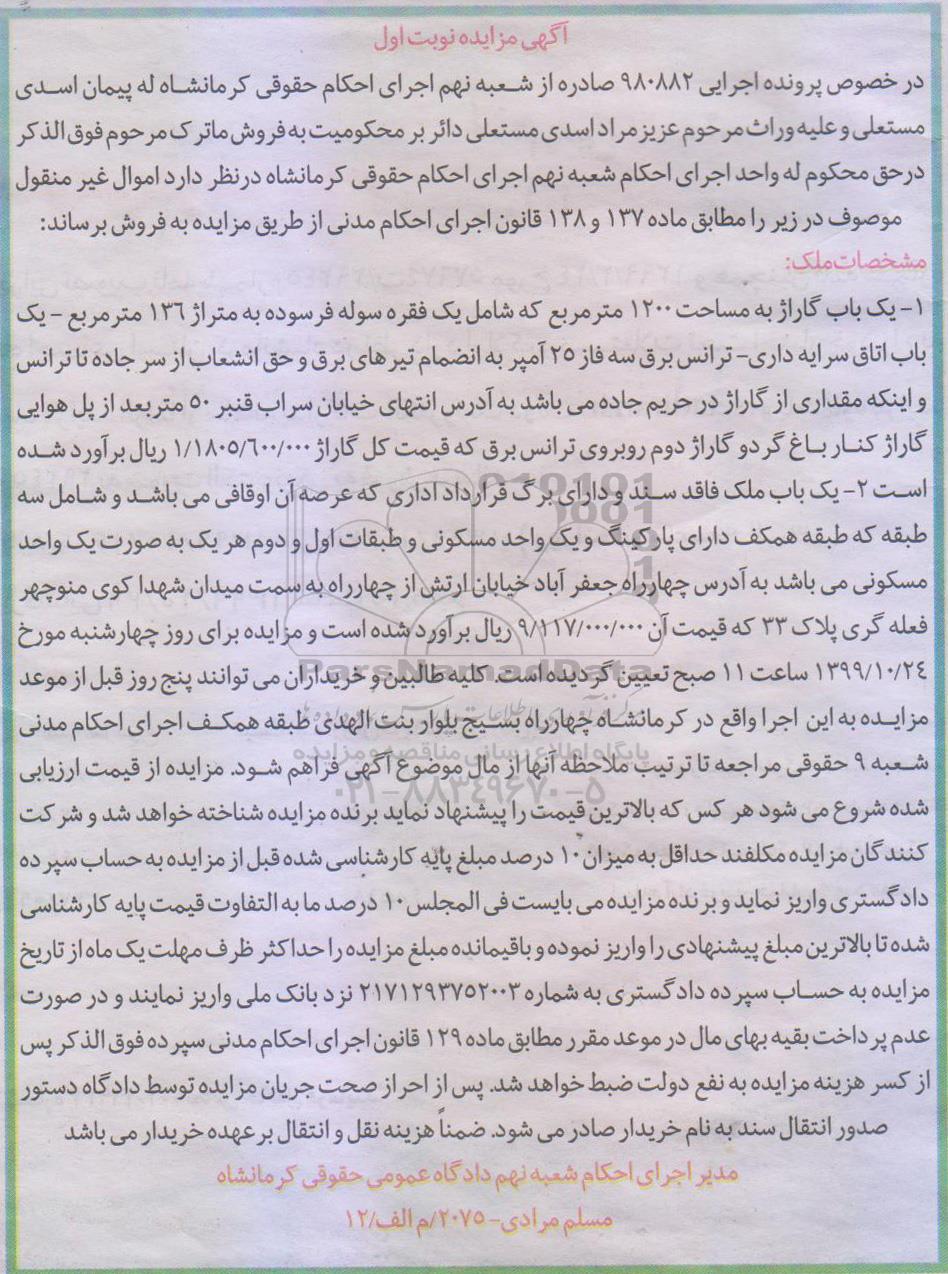 آگهی مزایده نوبت اول
در خصوص پرونده اجرایی ۹۸۰۸۸۲ صادره از شعبه نهم اجرای احکام حقوقی کرمانشاه له پیمان اسدی
مستعلی و علیه وراث مرحوم عزیزمراد اسدی مستعلی دائر بر محکومیت به فروش ماترک مرحوم فوق الذکر
درحق محکوم له واحد اجرای احکام شعبه نهم اجرای احکام حقوقی کرمانشاه درنظر دارد اموال غیر منقول
موصوف در زیر را مطابق ماده ۱۳۷ و ۱۳۸ قانون اجرای احکام مدنی از طریق مزایده به فروش برساند:
مشخصات ملک:
۱- یک باب گاراژ به مساحت ۱۲۰۰ مترمربع که شامل یک فقره سوله فرسوده به متراژ ۱۳۶ مترمربع - یک
باب اتاق سرایه داری- ترانس برق سه فاز ۲۵ آمپر به انضمام تیرهای برق و حق انشعاب از سر جاده تا ترانس
و اینکه مقداری از گاراژ در حریم جاده می باشد به آدرس انتهای خیابان سراب قنبر ۵۰ متربعد از پل هوایی
گاراژ کنار باغ گردو گاراژ دوم روبروی ترانس برق که قیمت کل گاراژ ۱/۱۸۰۵/۶۰۰/۰۰۰ ریال برآورد شده
است ۲- یک باب ملک فاقد سند و دارای برگ قرارداد اداری که عرصه آن اوقافی می باشد و شامل سه
طبقه که طبقه همکف دارای پارکینگ و یک واحد مسکونی و طبقات اول و دوم هر یک به صورت یک واحد
مسکونی می باشد به آدرس چهارراه جعفر آباد خیابان ارتش از چهارراه به سمت میدان شهدا کوی منوچهر
فعله گری پلاک ۳۳ که قیمت آن ۹/۱۱۷/۰۰۰/۰۰۰ ریال برآورد شده است و مزایده برای روز چهارشنبه مورخ
۱۳۹۹/۱۰/۲۴ ساعت ۱۱ صبح تعیین گردیده است. کلیه طالبین و خریداران می توانند پنج روز قبل از موعد
مزایده به این اجرا واقع در کرمانشاه چهارراه بسیج بلوار بنت الهدی طبقه همکف اجرای احکام مدنی
شعبه ۹ حقوقی مراجعه تا ترتیب ملاحظه آنها از مال موضوع آگهی فراهم شود. مزایده از قیمت ارزیابی
شده شروع می شود هر کس که بالاترین قیمت را پیشنهاد نماید برنده مزایده شناخته خواهد شد و شرکت
کنندگان مزایده مکلفند حداقل به میزان ۱۰ درصد مبلغ پایه کارشناسی شده قبل از مزایده به حساب سپرده
دادگستری واریز نماید و برنده مزایده می بایست فی المجلس ۱۰ درصد ما به التفاوت قیمت پایه کارشناسی
شده تا بالاترین مبلغ پیشنهادی را واریز نموده و باقیمانده مبلغ مزایده را حداکثر ظرف مهلت یک ماه از تاریخ
مزایده به حساب سپرده دادگستری به شماره ۲۱۷۱۲۹۳۷۵۲۰۰۳ نزد بانک ملی واریز نمایند و در صورت
عدم پرداخت بقیه بهای مال در موعد مقرر مطابق ماده ۱۲۹ قانون اجرای احکام مدنی سپرده فوق الذکر پس
از کسر هزینه مزایده به نفع دولت ضبط خواهد شد. پس از احراز صحت جریان مزایده توسط دادگاه دستور
صدور انتقال سند به نام خریدار صادر می شود. ضمناً هزینه نقل و انتقال بر عهده خریدار می باشد
مدیر اجرای احکام شعبه نهم دادگاه عمومی حقوقی کرمانشاه
مسلم مرادی- ۲۰۷۵/م الف/۱۲
ParsNamadData
پایگاه اطلاع رسانی مناقصه و مزایده
۰۲۱-۸۸۳۴۹۶۷۰-۵